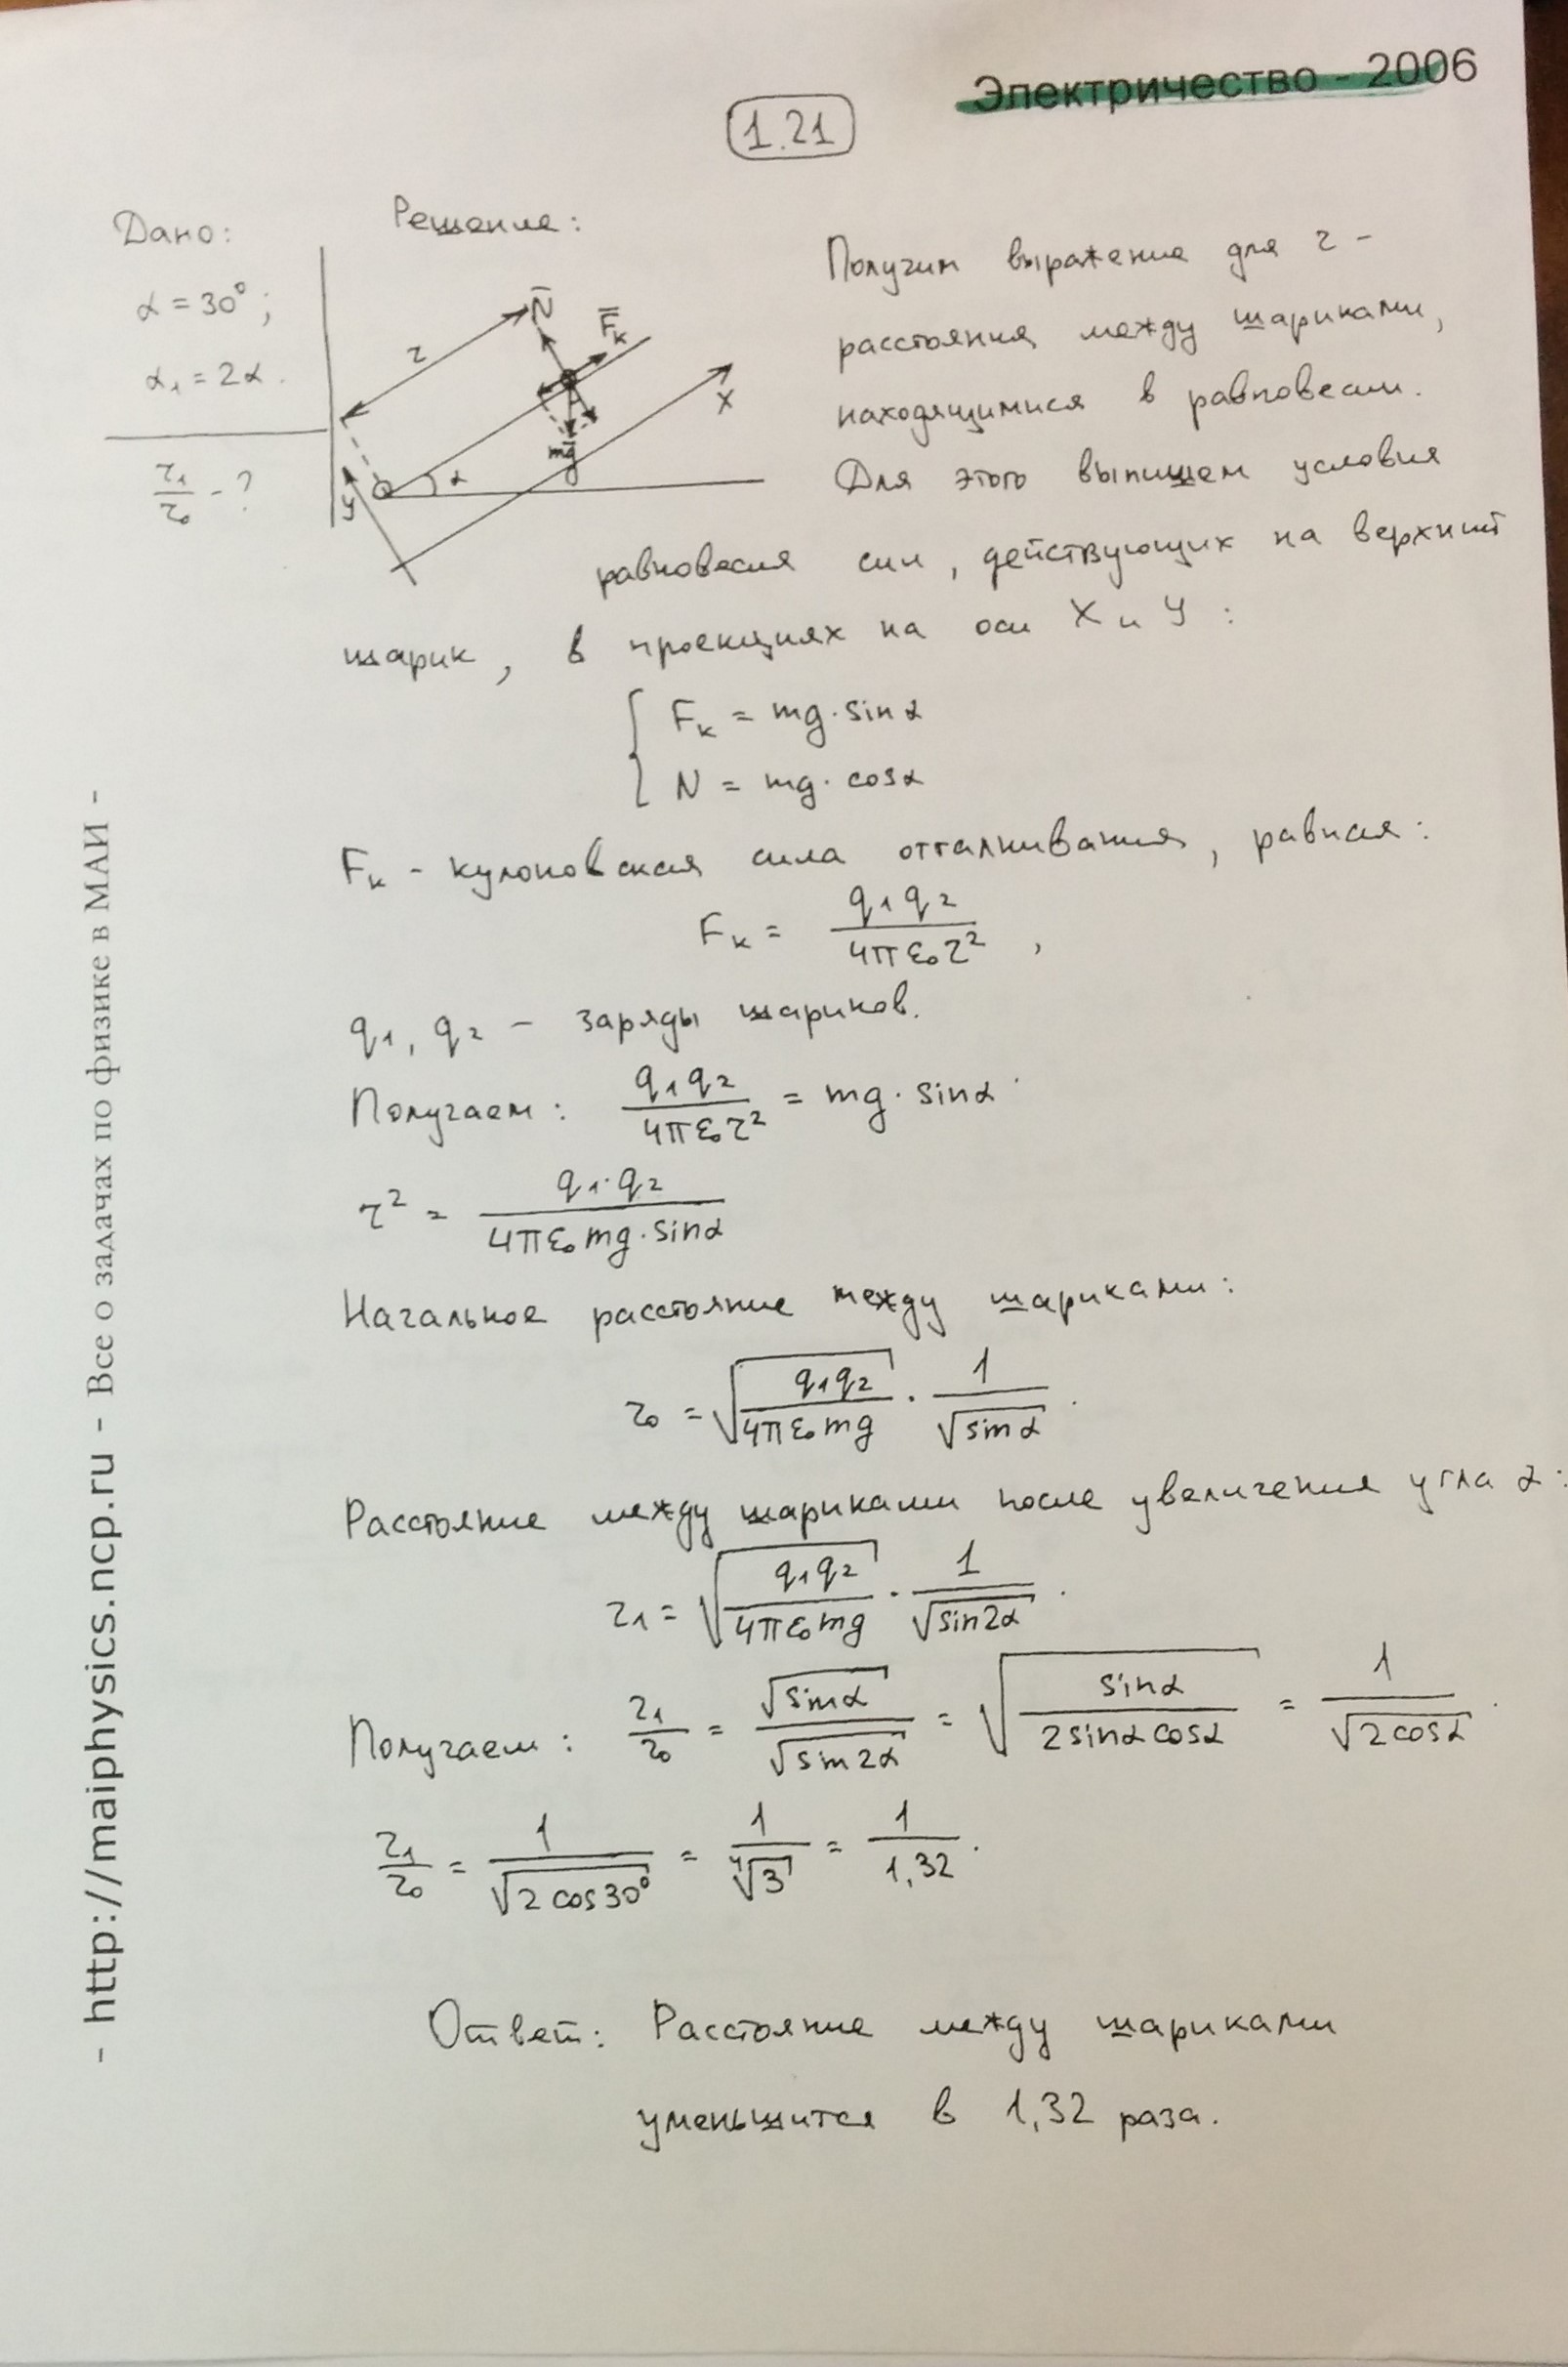 Электричество - 2006
1.21
Дано:
α = 30°;
α₁ = 2α.
r₁/r₀ - ?
Решение:
r
N̄
F̄ₖ
mḡ
α
X
y
Получим выражение для r -
расстояния между шариками,
находящимися в равновесии.
Для этого выпишем условия
равновесия сил, действующих на верхний
шарик, в проекциях на оси X и Y:
Fₖ = mg·sinα
N = mg·cosα
Fₖ - кулоновская сила отталкивания, равная:
Fₖ = q₁q₂/4πε₀r²,
q₁, q₂ - заряды шариков.
Получаем: q₁q₂/4πε₀r² = mg·sinα.
r² = q₁·q₂/4πε₀mg·sinα
Начальное расстояние между шариками:
r₀ = √(q₁q₂/4πε₀mg) · 1/√sinα.
Расстояние между шариками после увеличения угла α:
r₁ = √(q₁q₂/4πε₀mg) · 1/√sin2α.
Получаем: r₁/r₀ = √sinα/√sin2α = √(sinα/2sinαcosα) = 1/√2cosα.
r₁/r₀ = 1/√2cos30° = 1/⁴√3 = 1/1,32.
Ответ: Расстояние между шариками
уменьшится в 1,32 раза.
- http://maiphysics.ncp.ru - Все о задачах по физике в МАИ -